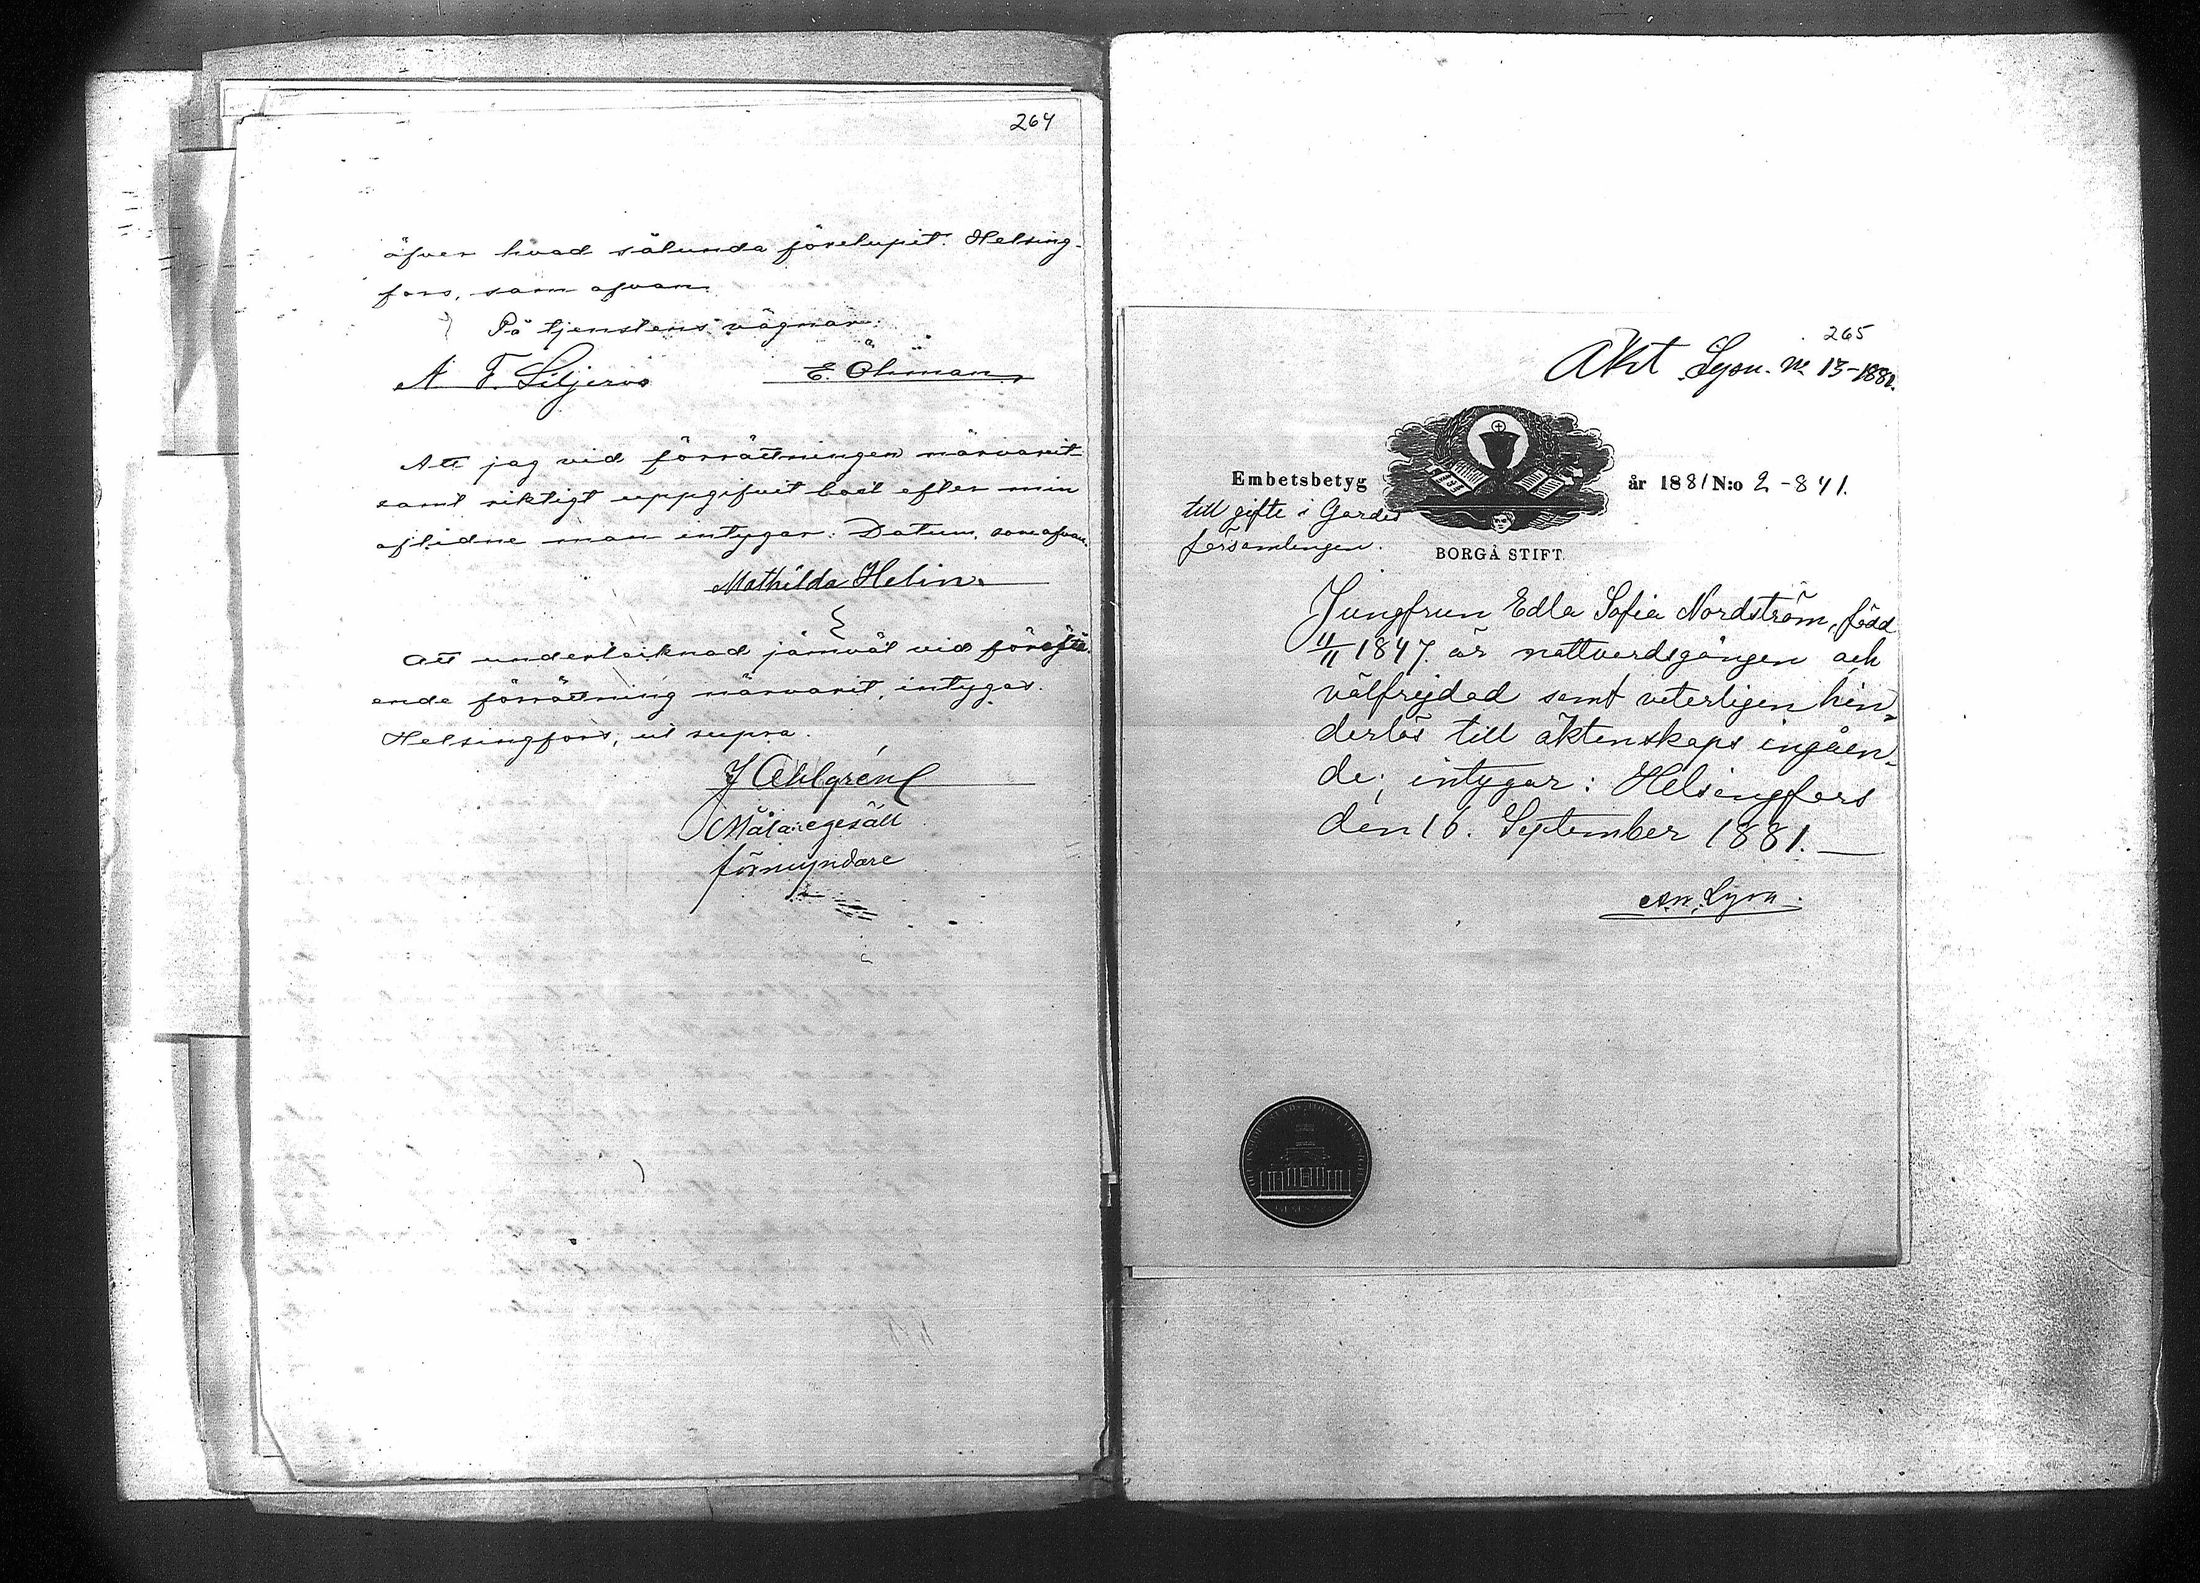 264
öfver hvad sålunda förelupit. Helsing-
fors, som ofvan.
På tjenstens vägnar:
A. F. Liljeroo E. Öhman
Att jag vid förrättningen närvarit
samt riktigt uppgifvit boet efter min
aflidne man intygar. Datum, som ofvan.
Mathilda Helin.
Att undertecknad jämväl vid förestå-
ende förrättning närvarit, intygar.
Helsingfors, ut supra.
J Ahlgrén
Målaregesäll
förmyndare
265
Akt Lysn. No 13-1881.
Embetsbetyg år 1881 N:o 2-841.
till gifte i Gardes
församlingen.
BORGÅ STIFT.
Jungfrun Edla Sofia Nordström, född
11/11 1847. är nattvardsgången och
välfrejdad samt veterligen hin-
derlös till äktenskaps ingåen-
de; intygar: Helsingfors
den 16. September 1881.